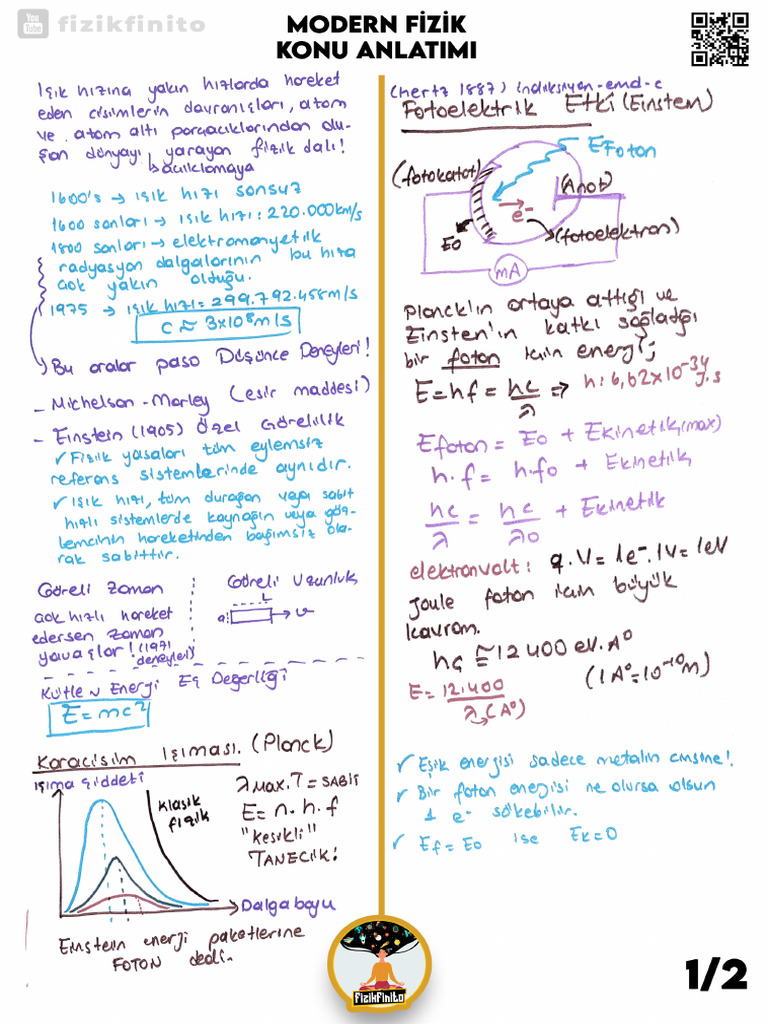 You Tube fizikfinito
MODERN FİZİK
KONU ANLATIMI
Işık hızına yakın hızlarda hareket
eden cisimlerin davranışları, atom
ve atom altı parçacıklarından olu-
şan dünyayı yarayan fizik dalı!
açıklamaya
1600's → ışık hızı sonsuz
1600 sonları → ışık hızı: 220.000km/s
1800 sonları → elektromanyetik
radyasyon dalgalarının bu hıza
çok yakın olduğu.
1975 → ışık hızı = 299.792.458m/s
c ≈ 3x10⁸m/s
Bu aralar paso Düşünce Deneyleri!
- Michelson-Morley (esir maddesi)
- Einstein (1905) Özel Görelilik
✓ Fizik yasaları tüm eylemsiz
referans sistemlerinde aynıdır.
✓ Işık hızı, tüm durağan veya sabit
hızlı sistemlerde kaynağın veya göz-
lemcinin hareketinden bağımsız ola-
rak sabittir.
Göreli Zaman
çok hızlı hareket
edersen zaman
yavaşlar! (1971
deneyleri)
Göreli Uzunluk
L
a
v
Kütle ~ Enerji Eş Değerliği
E=mc²
Karacisim Işıması. (Planck)
Işıma Şiddeti
klasik
fizik
Dalgaboyu
λmax.T = SABİT
E= n.h.f
"kesikli"
TANECİK!
Einstein enerji paketlerine
FOTON dedi.
(hertz 1887) indüksiyon-emd-c
Fotoelektrik Etki (Einstein)
EFoton
(fotokatot)
(Anot)
e⁻
E0
(fotoelektron)
mA
Planck'ın ortaya attığı ve
Einsten'ın katkı sağladığı
bir foton için enerji;
E=hf= hc/λ => h: 6,62x10⁻³⁴ J.s
Efoton = E0 + Ekinetik(max)
h.f = h.f0 + Ekinetik
hc/λ = hc/λ0 + Ekinetik
elektronvolt: q.V = 1e⁻.1V = 1eV
Joule foton için büyük
kavram.
hc ≅ 12 400 eV.A°
(1A°=10⁻¹⁰m)
E= 12.400/λ (A°)
✓ Eşik enerjisi sadece metalin cinsine!
✓ Bir foton enerjisi ne olursa olsun
1 e⁻ sökebilir.
✓ Ef = E0 ise Ek=0
fizikfinito
1/2